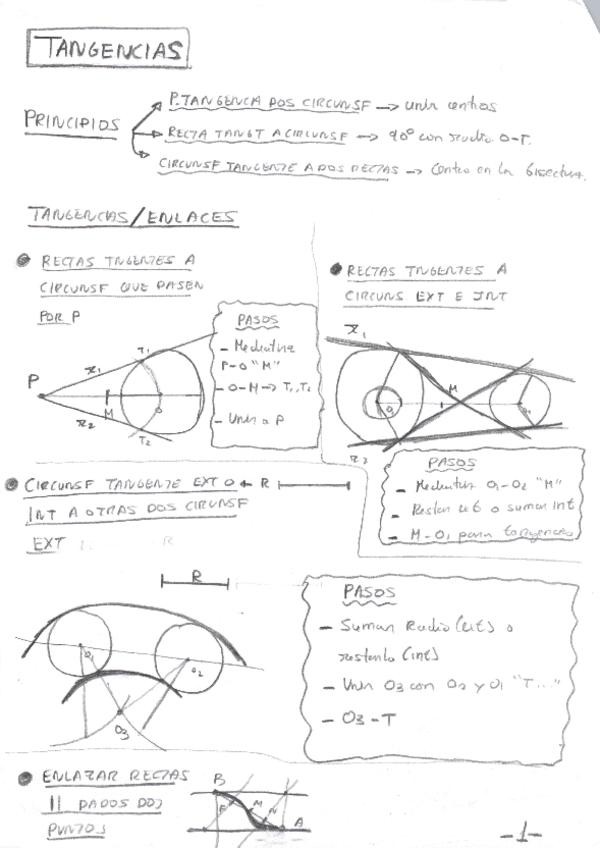 TANGENCIAS
PRINCIPIOS
P. TANGENCIA DOS CIRCUNSF → unir centros
RECTA TANGT A CIRCUNSF → 90° con radio O-T.
CIRCUNSF TANGENTE A DOS RECTAS → Centro en la bisectriz.
TANGENCIAS/ENLACES
RECTAS TNGENTES A
CIRCUNSF QUE PASEN
POR P
P
r1
r2
T1
T2
M
O
PASOS
- Mediatriz
P-O "M"
- O-M → T1, T2
- Unir a P
RECTAS TNGENTES A
CIRCUNS EXT E INT
r1
r2
O1
M
O2
PASOS
- Mediatriz O1-O2 "M"
- Restar ext o sumar Int
- M-O1 para tangencias
CIRCUNSF TANGENTE EXT O ← R
INT A OTRAS DOS CIRUNSF
EXT
R
O1
O2
O3
PASOS
- Sumar Radio (ext) o
restarlo (int)
- Unir O3 con O2 y O1 "T..."
- O3-T
ENLAZAR RECTAS
|| DADOS DOS
PUNTOS
B
M
N
A
-1-